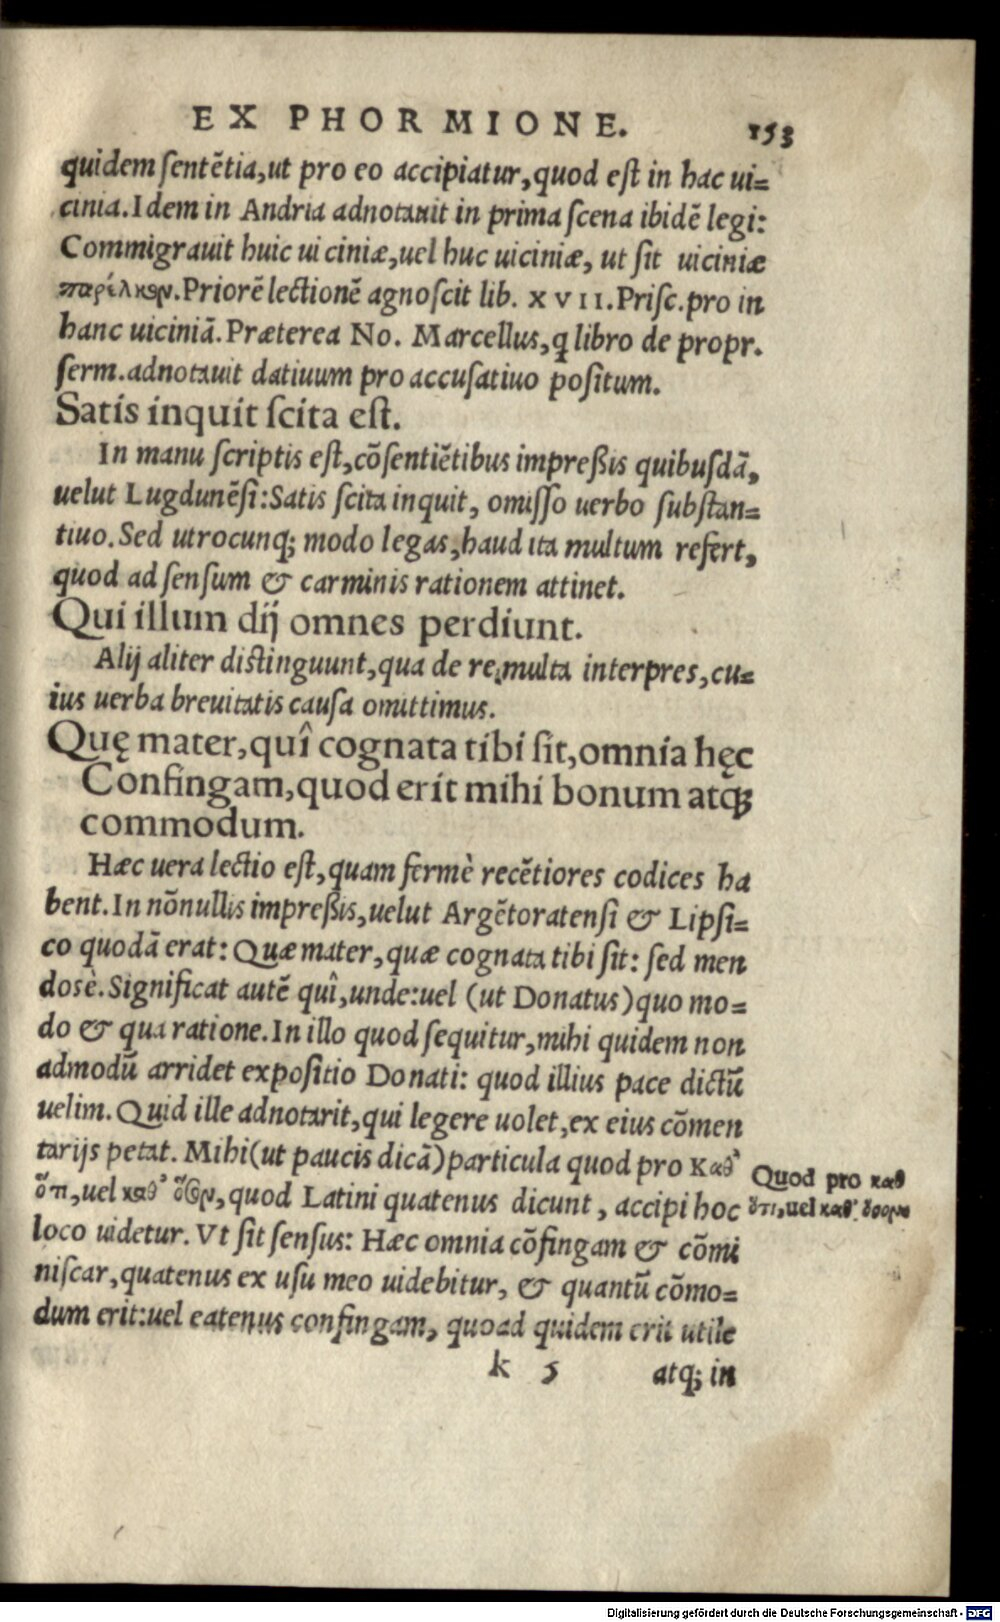 EX PHORMIONE. 153
quidem ſentẽtia,ut pro eo accipiatur,quod eſt in hac ui=
cinia.Idem in Andria adnotauit in prima ſcena ibidẽ legi:
Commigrauit huic uiciniæ,uel huc uiciniæ, ut ſit uiciniæ
παρέλκον.Priorẽ lectionẽ agnoſcit lib. XVII.Priſc.pro in
hanc uiciniã.Præterea No. Marcellus,q libro de propr.
ſerm.adnotauit datiuum pro accuſatiuo poſitum.
Satis inquit ſcita eſt.
In manu ſcriptis eſt,cõſentiẽtibus impreßis quibuſdã,
uelut Lugdunẽſi:Satis ſcita inquit, omiſſo uerbo ſubſtan=
tiuo.Sed utrocunq; modo legas,haud ita multum refert,
quod ad ſenſum & carminis rationem attinet.
Qui illum dij omnes perdiunt.
Alij aliter diſtinguunt,qua de re multa interpres,cu=
ius uerba breuitatis cauſa omittimus.
Quę mater,quî cognata tibi ſit,omnia hęc
Confingam,quod erit mihi bonum atq;
commodum.
Hæc uera lectio eſt,quam fermè recẽtiores codices ha
bent.In nõnullis impreßis,uelut Argẽtoratenſi & Lipſi=
co quodã erat: Quæ mater,quæ cognata tibi ſit: ſed men
dosè.Significat autẽ quî,unde:uel (ut Donatus)quo mo=
do & qua ratione.In illo quod ſequitur,mihi quidem non
admodũ arridet expoſitio Donati: quod illius pace dictũ
uelim.Quid ille adnotarit,qui legere uolet,ex eius cõmen
tarijs petat. Mihi(ut paucis dicã)particula quod pro καθ'
ὅτι,uel καθ' ὅσον,quod Latini quatenus dicunt, accipi hoc
loco uidetur. Vt ſit ſenſus: Hæc omnia cõfingam & cõmi
niſcar,quatenus ex uſu meo uidebitur, & quantũ cõmo=
dum erit:uel eatenus confingam, quoad quidem erit utile
k 5 atq; in
Quod pro καθ
ὅτι,uel καθ' ὅσον
Digitalisierung gefördert durch die Deutsche Forschungsgemeinschaft - DFG